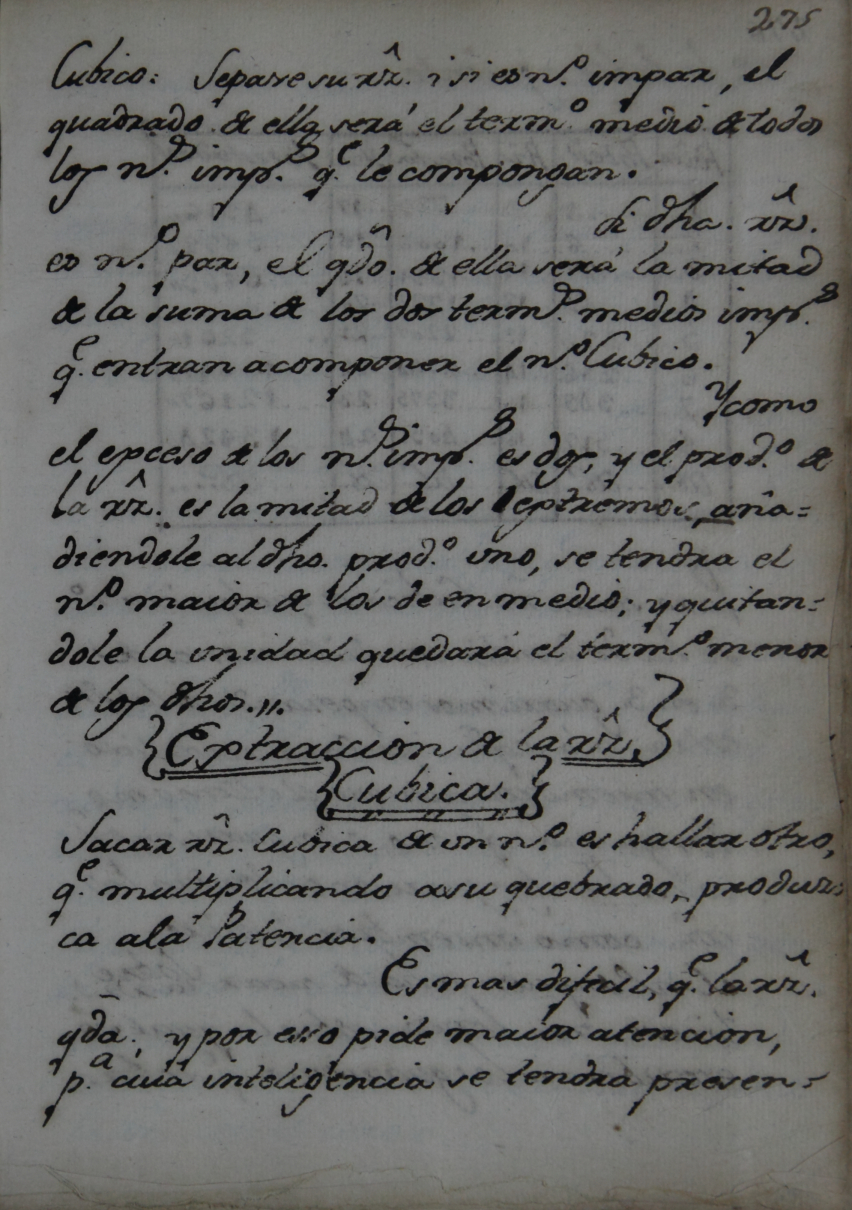 275
Cubico: Separe su rz̃. i si es n.º impar, el
quadrado de ella será el term.º medio de todos
los n.ˢ imp.ˢ q.ᵉ le compongan.
Si dha. rz̃.
es n.º par, el qdõ. de ella será la mitad
de la suma de los dos term.ˢ medios imp.ˢ
q.ᵉ entran a componer el n.º Cubico.
Y como
el epceso de los n.ˢ imp.ˢ es dos, y el prod.º de
la rz̃. es la mitad de los eptremos, aña=
diendole al dho. prod.º uno, se tendra el
n.º maior de los de en medio; y quitan=
dole la unidad quedará el term.º menor
de los dhos.,,.
{Eptraccion de la rz̃.}
{Cubica.}
Sacar rz̃. Cubica de un n.º es hallar otro,
q.ᵉ multiplicando a su quebrado, produz
ca a la Patencia.
Es mas difecil, q.ᵉ la rz̃.
qdã; y por eso pide maior atencion,
p.ᵃ cuia inteligencia se tendra presen=